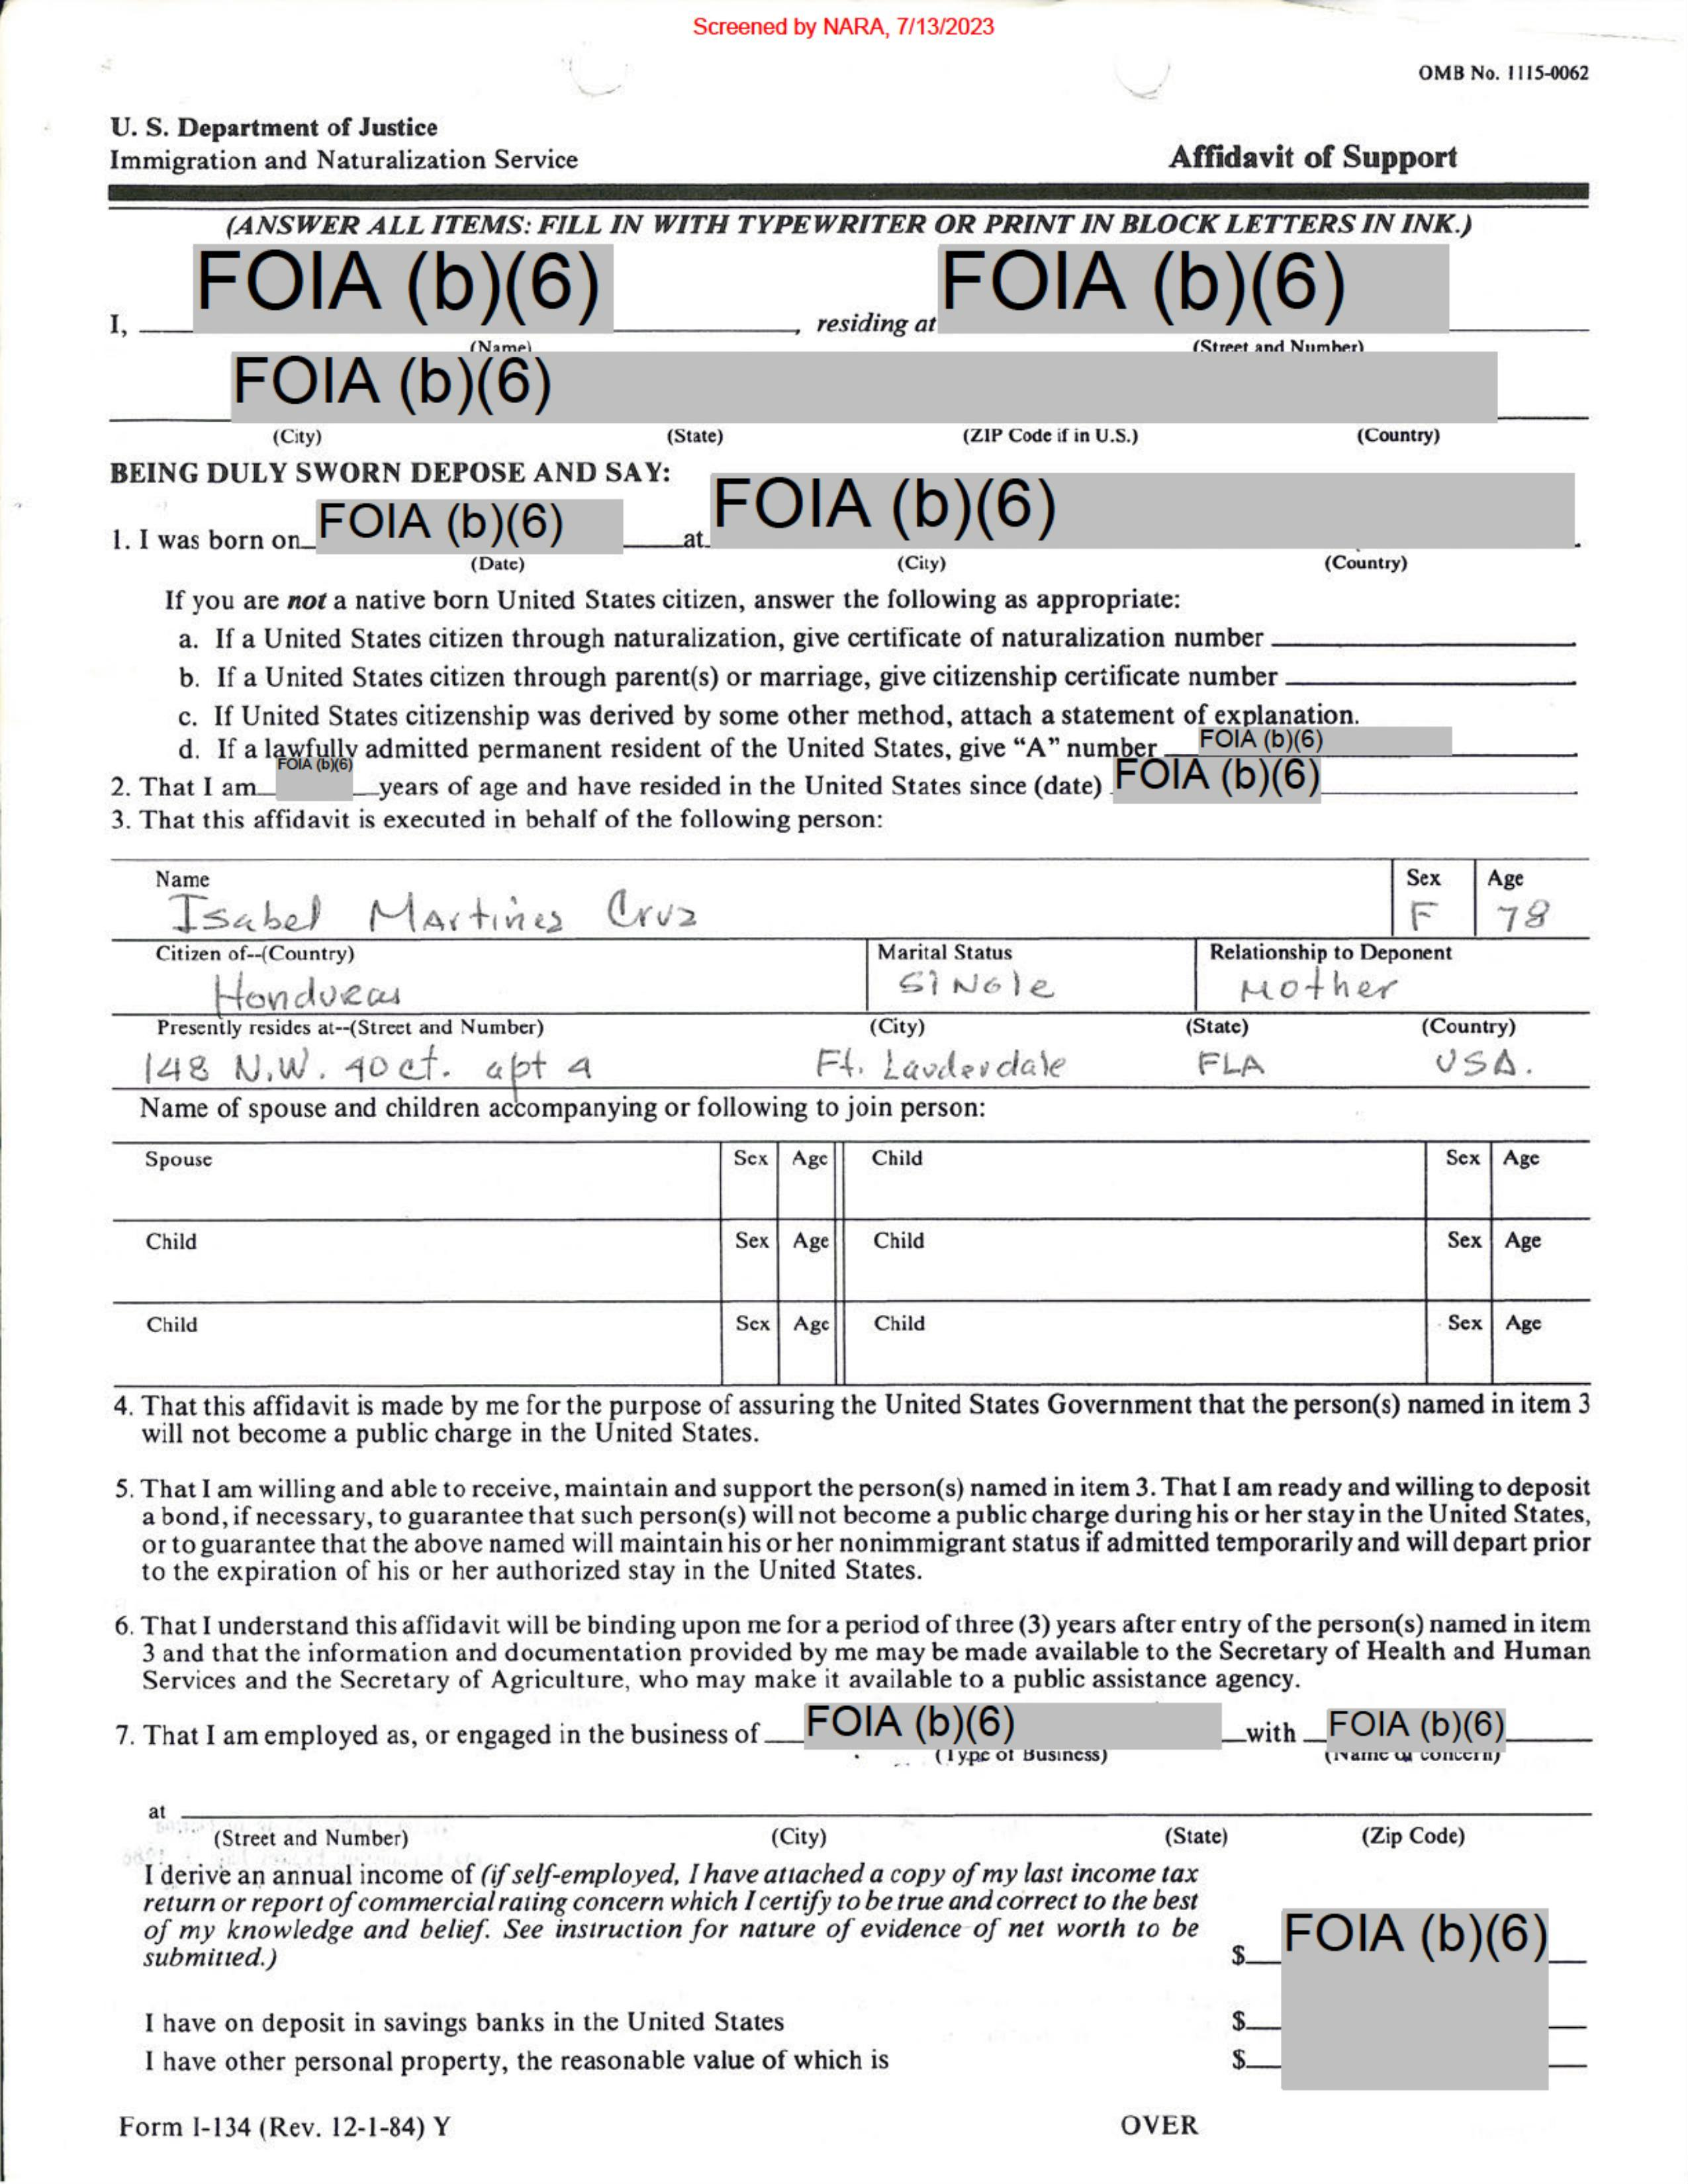 Screened by NARA, 7/13/2023
OMB No. 1115-0062
U. S. Department of Justice
Immigration and Naturalization Service
Affidavit of Support
(ANSWER ALL ITEMS: FILL IN WITH TYPEWRITER OR PRINT IN BLOCK LETTERS IN INK.)
I, FOIA (b)(6), residing at FOIA (b)(6)
(Name) (Street and Number)
FOIA (b)(6)
(City) (State) (ZIP Code if in U.S.) (Country)
BEING DULY SWORN DEPOSE AND SAY:
1. I was born on FOIA (b)(6) at FOIA (b)(6).
(Date) (City) (Country)
If you are not a native born United States citizen, answer the following as appropriate:
a. If a United States citizen through naturalization, give certificate of naturalization number
b. If a United States citizen through parent(s) or marriage, give citizenship certificate number
c. If United States citizenship was derived by some other method, attach a statement of explanation.
d. If a lawfully admitted permanent resident of the United States, give “A” number FOIA (b)(6)
2. That I am FOIA (b)(6) years of age and have resided in the United States since (date) FOIA (b)(6)
3. That this affidavit is executed in behalf of the following person:
Name Sex Age
Isabel Martines Cruz F 78
Citizen of--(Country) Marital Status Relationship to Deponent
Honduras SINGle Mother
Presently resides at--(Street and Number) (City) (State) (Country)
148 N.W. 40 ct. apt 4 Ft. Lauderdale FLA USA.
Name of spouse and children accompanying or following to join person:
Spouse Sex Age Child Sex Age
Child Sex Age Child Sex Age
Child Sex Age Child Sex Age
4. That this affidavit is made by me for the purpose of assuring the United States Government that the person(s) named in item 3
will not become a public charge in the United States.
5. That I am willing and able to receive, maintain and support the person(s) named in item 3. That I am ready and willing to deposit
a bond, if necessary, to guarantee that such person(s) will not become a public charge during his or her stay in the United States,
or to guarantee that the above named will maintain his or her nonimmigrant status if admitted temporarily and will depart prior
to the expiration of his or her authorized stay in the United States.
6. That I understand this affidavit will be binding upon me for a period of three (3) years after entry of the person(s) named in item
3 and that the information and documentation provided by me may be made available to the Secretary of Health and Human
Services and the Secretary of Agriculture, who may make it available to a public assistance agency.
7. That I am employed as, or engaged in the business of FOIA (b)(6) with FOIA (b)(6)
(Type of Business) (Name of concern)
at
(Street and Number) (City) (State) (Zip Code)
I derive an annual income of (if self-employed, I have attached a copy of my last income tax
return or report of commercial rating concern which I certify to be true and correct to the best
of my knowledge and belief. See instruction for nature of evidence of net worth to be
submitted.) $ FOIA (b)(6)
I have on deposit in savings banks in the United States $
I have other personal property, the reasonable value of which is $
Form I-134 (Rev. 12-1-84) Y OVER